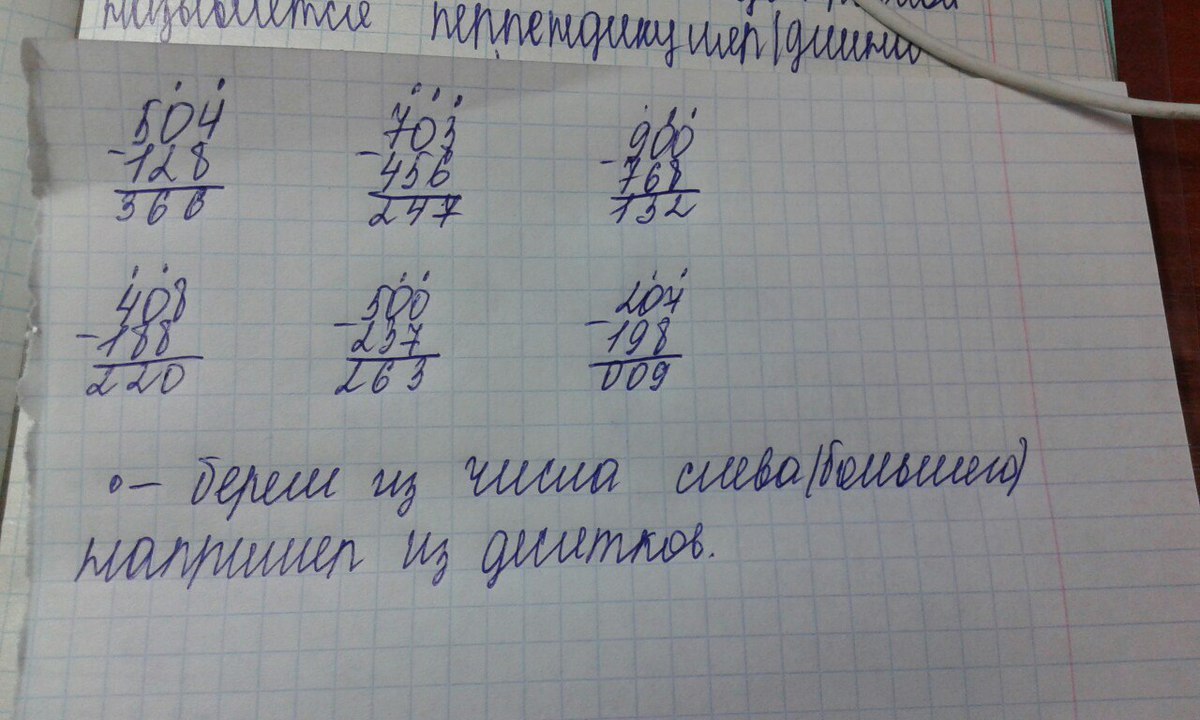 называется перпендикуляр/длина
504
-128
366
703
-456
247
900
-768
132
408
-188
220
500
-237
263
204
-198
009
•– берем из числа слева(большего)
например из десятков.